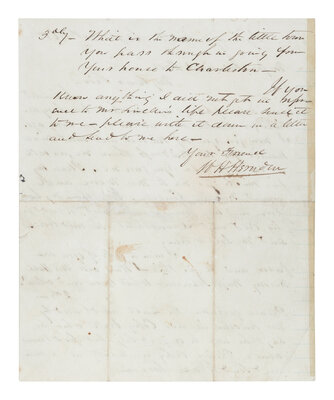 3dly— What is the name of the little town
you pass through in going from
Your house to Charleston—
If you
Know anything I did not get in refer-
ence to Mr Lincoln's life please send it
to me — please write it down in a letter
and send to me here —
Your Friend
W H Herndon